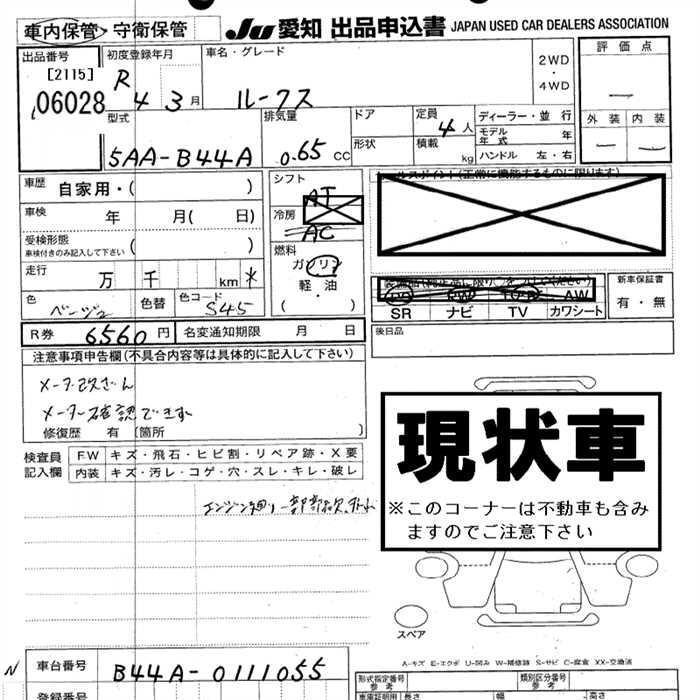 車内保管・守衛保管
Ju 愛知 出品申込書 JAPAN USED CAR DEALERS ASSOCIATION
出品番号 初度登録年月 車名・グレード 2WD・4WD 評価点
[2115]
06028
R 4 3月 ルークス
外装 内装
型式 排気量 ドア 定員 4人 ディーラー・並行
5AA-B44A 0.65 CC 形状 積載 kg モデル年式 年
ハンドル 左・右
車歴 自家用・( )
シフト AT
車検 年 月( 日)
冷房 AC
受検形態 ( )
車検付きのみ記入して下さい
燃料 ガソリン
(軽油・)
走行 万 千 km *
色 ベージュ 色替 色コード S45
SR ナビ TV カワシート
新車保証書 有・無
R券 6560円 名変通知期限 月 日
後日品
注意事項申告欄(不具合内容等は具体的に記入して下さい)
メーター改ざん
メーター確認できず
修復歴 有 〔箇所 〕
検査員記入欄
FW キズ・飛石・ヒビ割・リペア跡・X要
内装 キズ・汚レ・コゲ・穴・スレ・キレ・破レ
エンジン廻り一部部品欠
現状車
※このコーナーは不動車も含み
ますのでご注意下さい
スペア
A-キズ E-エクボ U-凹み W-補修跡 S-サビ C-腐食 XX-交換済
N 車台番号 B44A-0111055
登録番号
形式指定番号 参考 類別区分番号 参考
車庫証明用 長さ 幅 高さ